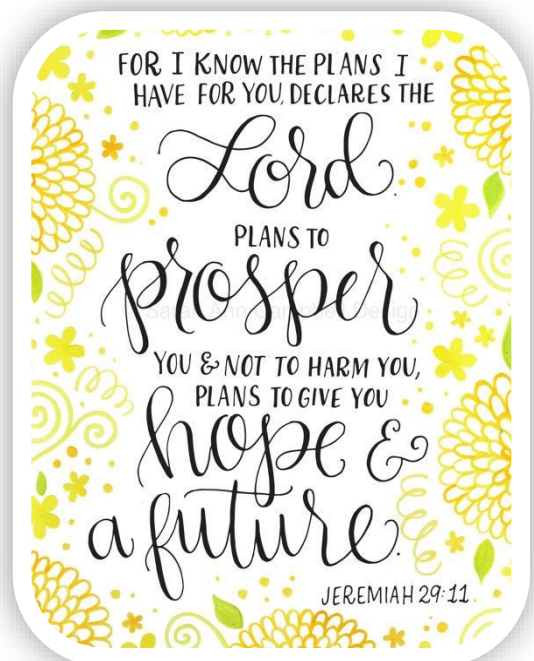 FOR I KNOW THE PLANS I
HAVE FOR YOU, DECLARES THE
Lord.
PLANS TO
prosper
YOU & NOT TO HARM YOU,
PLANS TO GIVE YOU
hope &
a future.
JEREMIAH 29:11